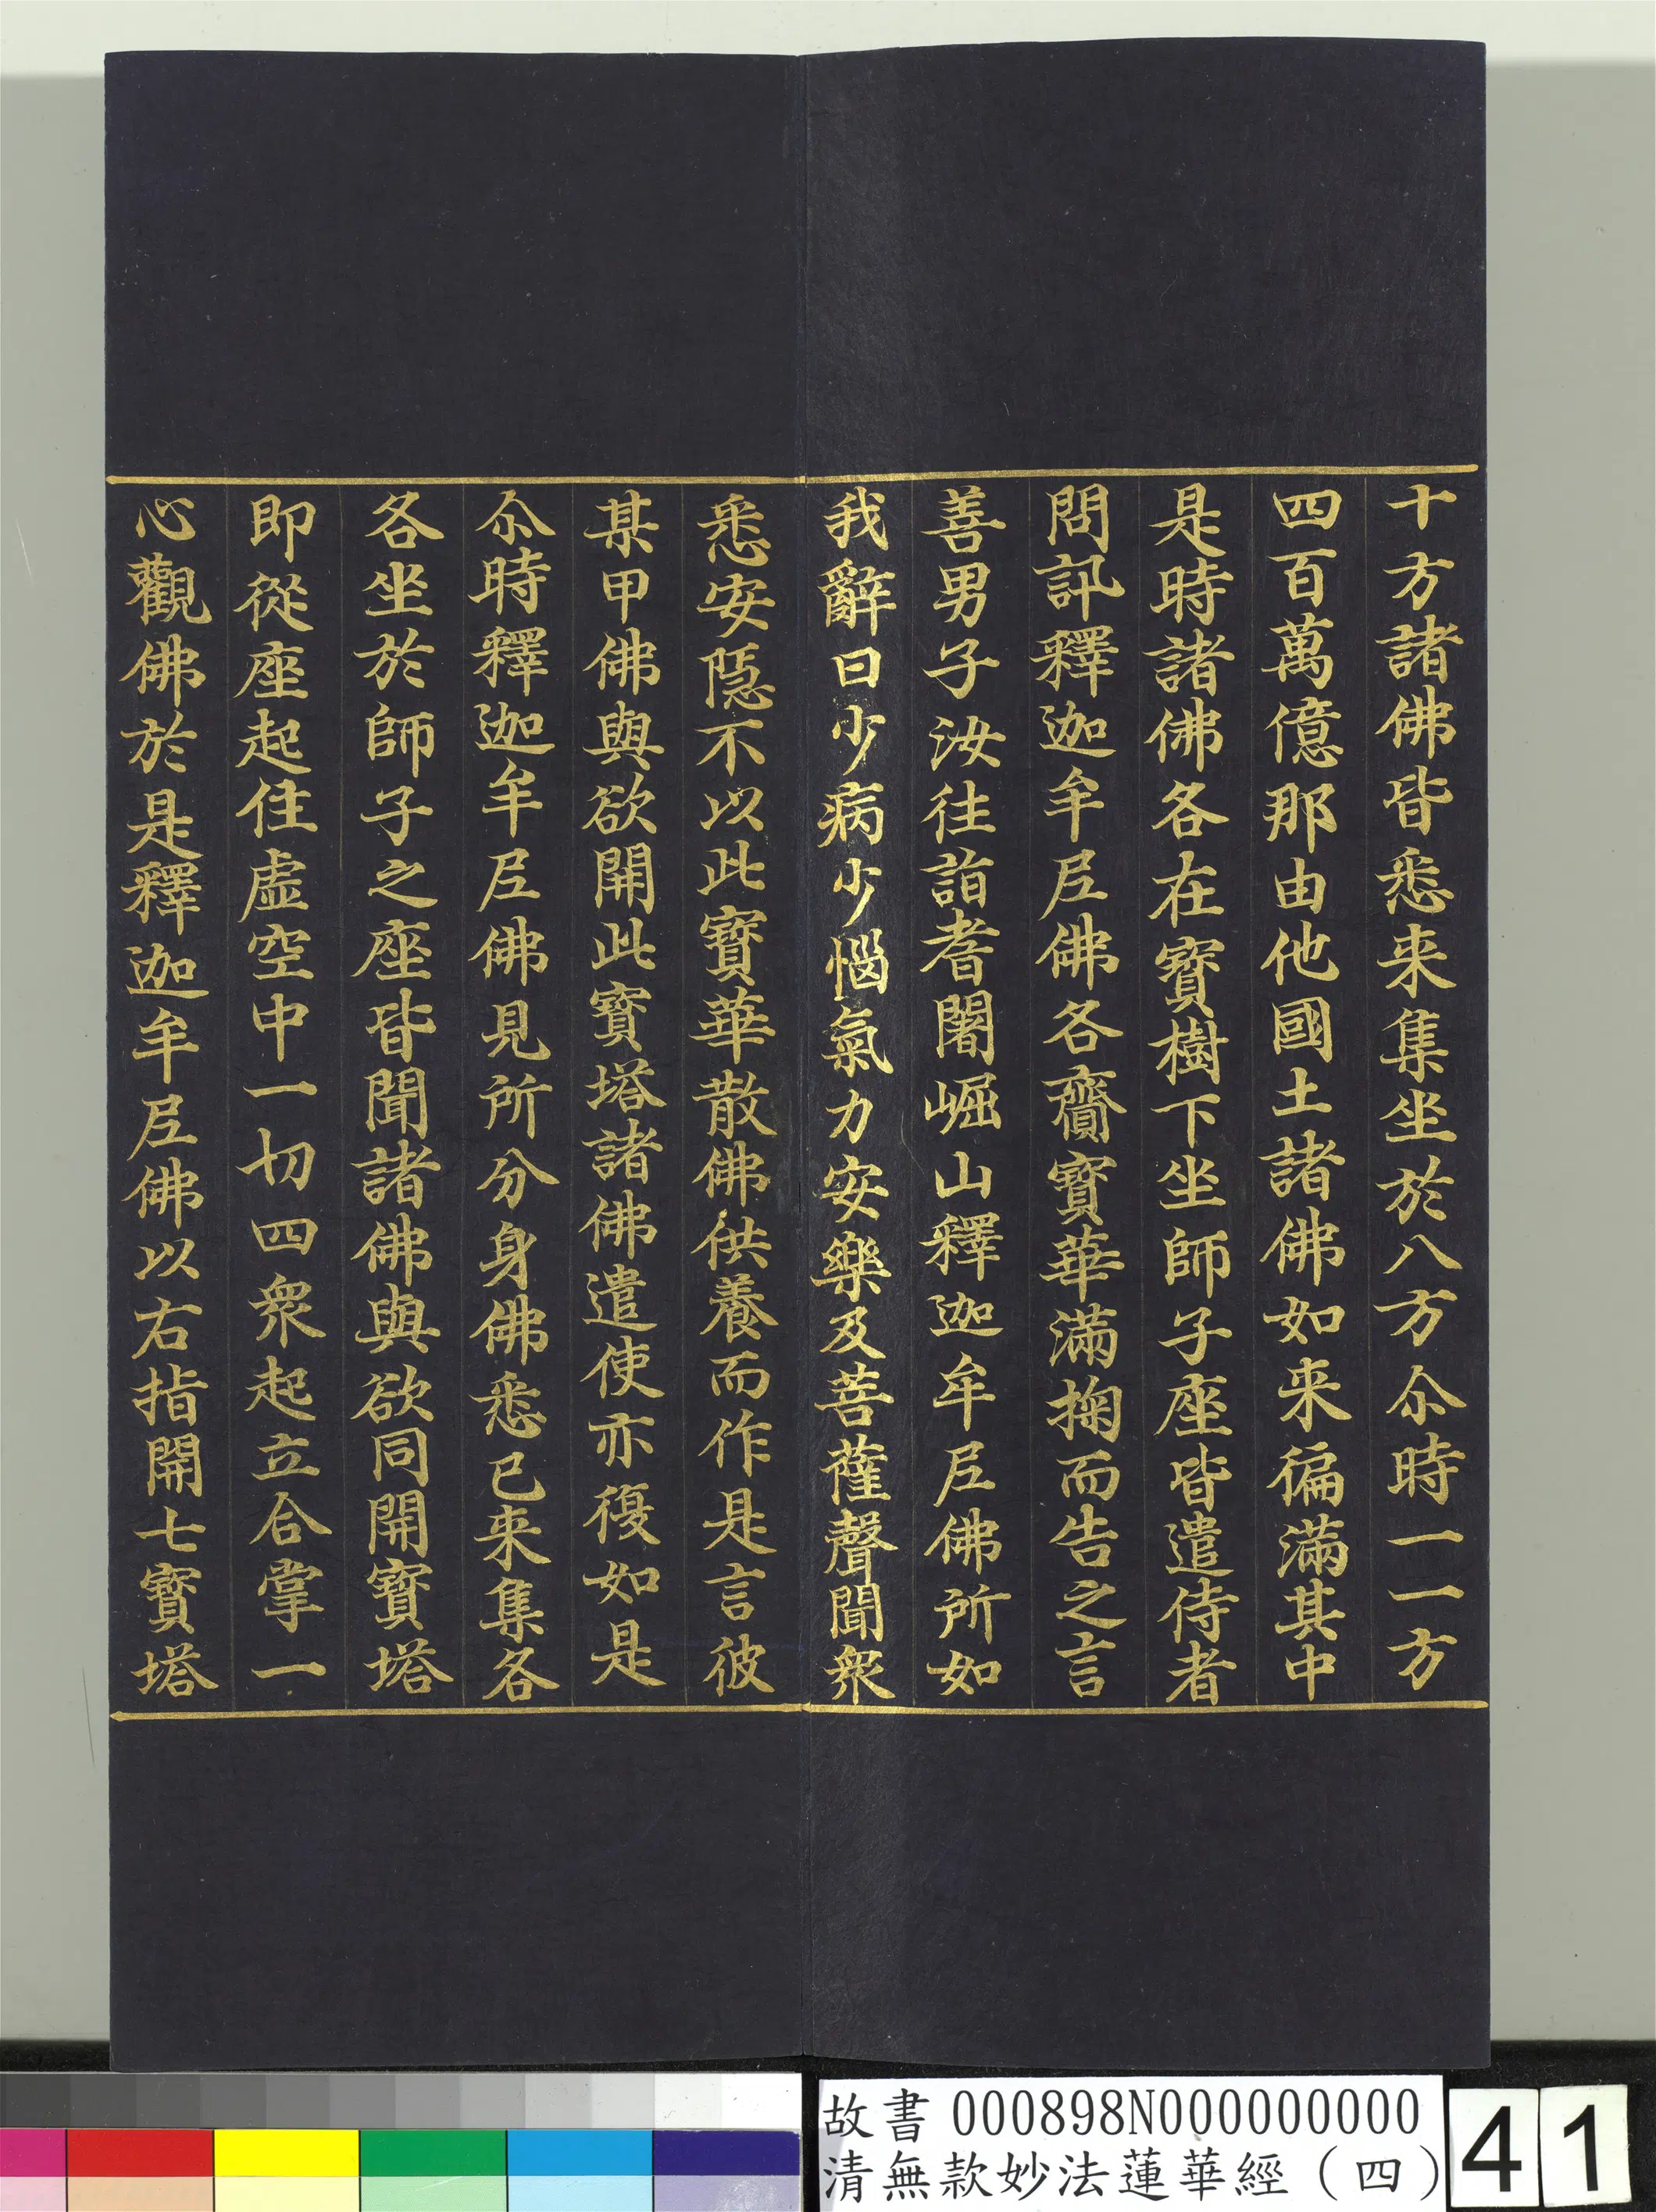 十方諸佛皆悉来集坐於八方尒時一一方
四百萬億那由他國土諸佛如来徧滿其中
是時諸佛各在寶樹下坐師子座皆遣侍者
問訊釋迦牟尼佛各齎寶華滿掬而告之言
善男子汝往詣耆闍崛山釋迦牟尼佛所如
我辭曰少病少惱氣力安樂及菩薩聲聞衆
悉安隱不以此寶華散佛供養而作是言彼
某甲佛與欲開此寶塔諸佛遣使亦復如是
尒時釋迦牟尼佛見所分身佛悉已来集各
各坐於師子之座皆聞諸佛與欲同開寶塔
即從座起住虛空中一切四衆起立合掌一
心觀佛於是釋迦牟尼佛以右指開七寶塔
故書 000898N000000000
清無款妙法蓮華經（四）
41